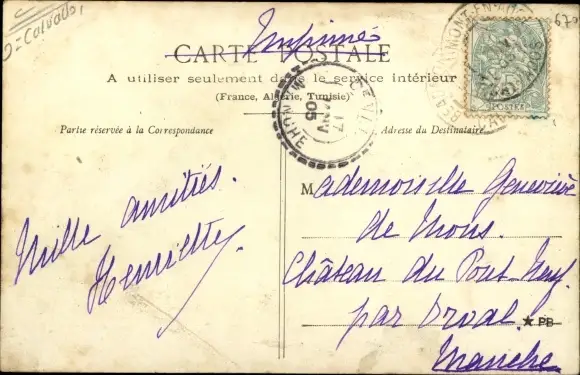 D-Calvados
670
Imprimés
CARTE POSTALE
A utiliser seulement dans le service intérieur
(France, Algérie, Tunisie)
Partie réservée à la Correspondance
Adresse du Destinataire
17
05
MANCHE
POSTES
Mille amitiés.
Henriette.
Mademoiselle Geneviève
de Mons
Château du Pont Neuf.
par Orval.
★ PB
Manche